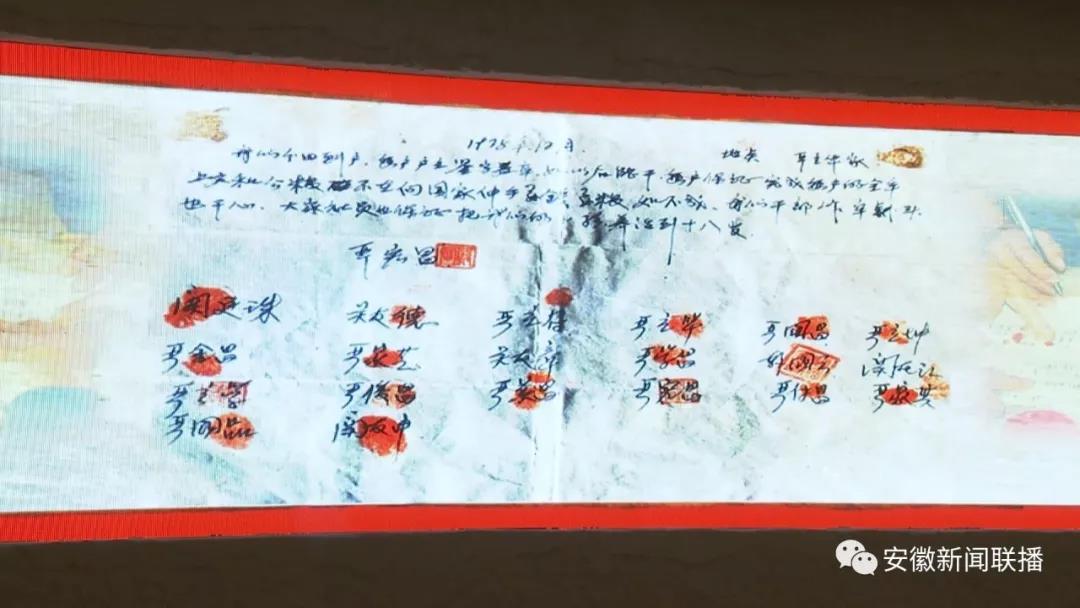 1978年12月 地点 严立华家
我们分田到户,每户户主签字盖章,如以后能干,每户保证完成每户的全年
上交和公粮,不在向国家伸手要钱要粮,如不成,我们干部作牢刹头
也干心,大家社员也保证把我们的小孩养活到十八岁
严宏昌
关廷珠 关友德 严立付 严立华 严国昌 严立坤
严金昌 严家芝 关友章 严学昌 韩国云 关友江
严立学 严俊昌 严美昌 严宏昌 严付昌 严家其
严国品 关友申
安徽新闻联播